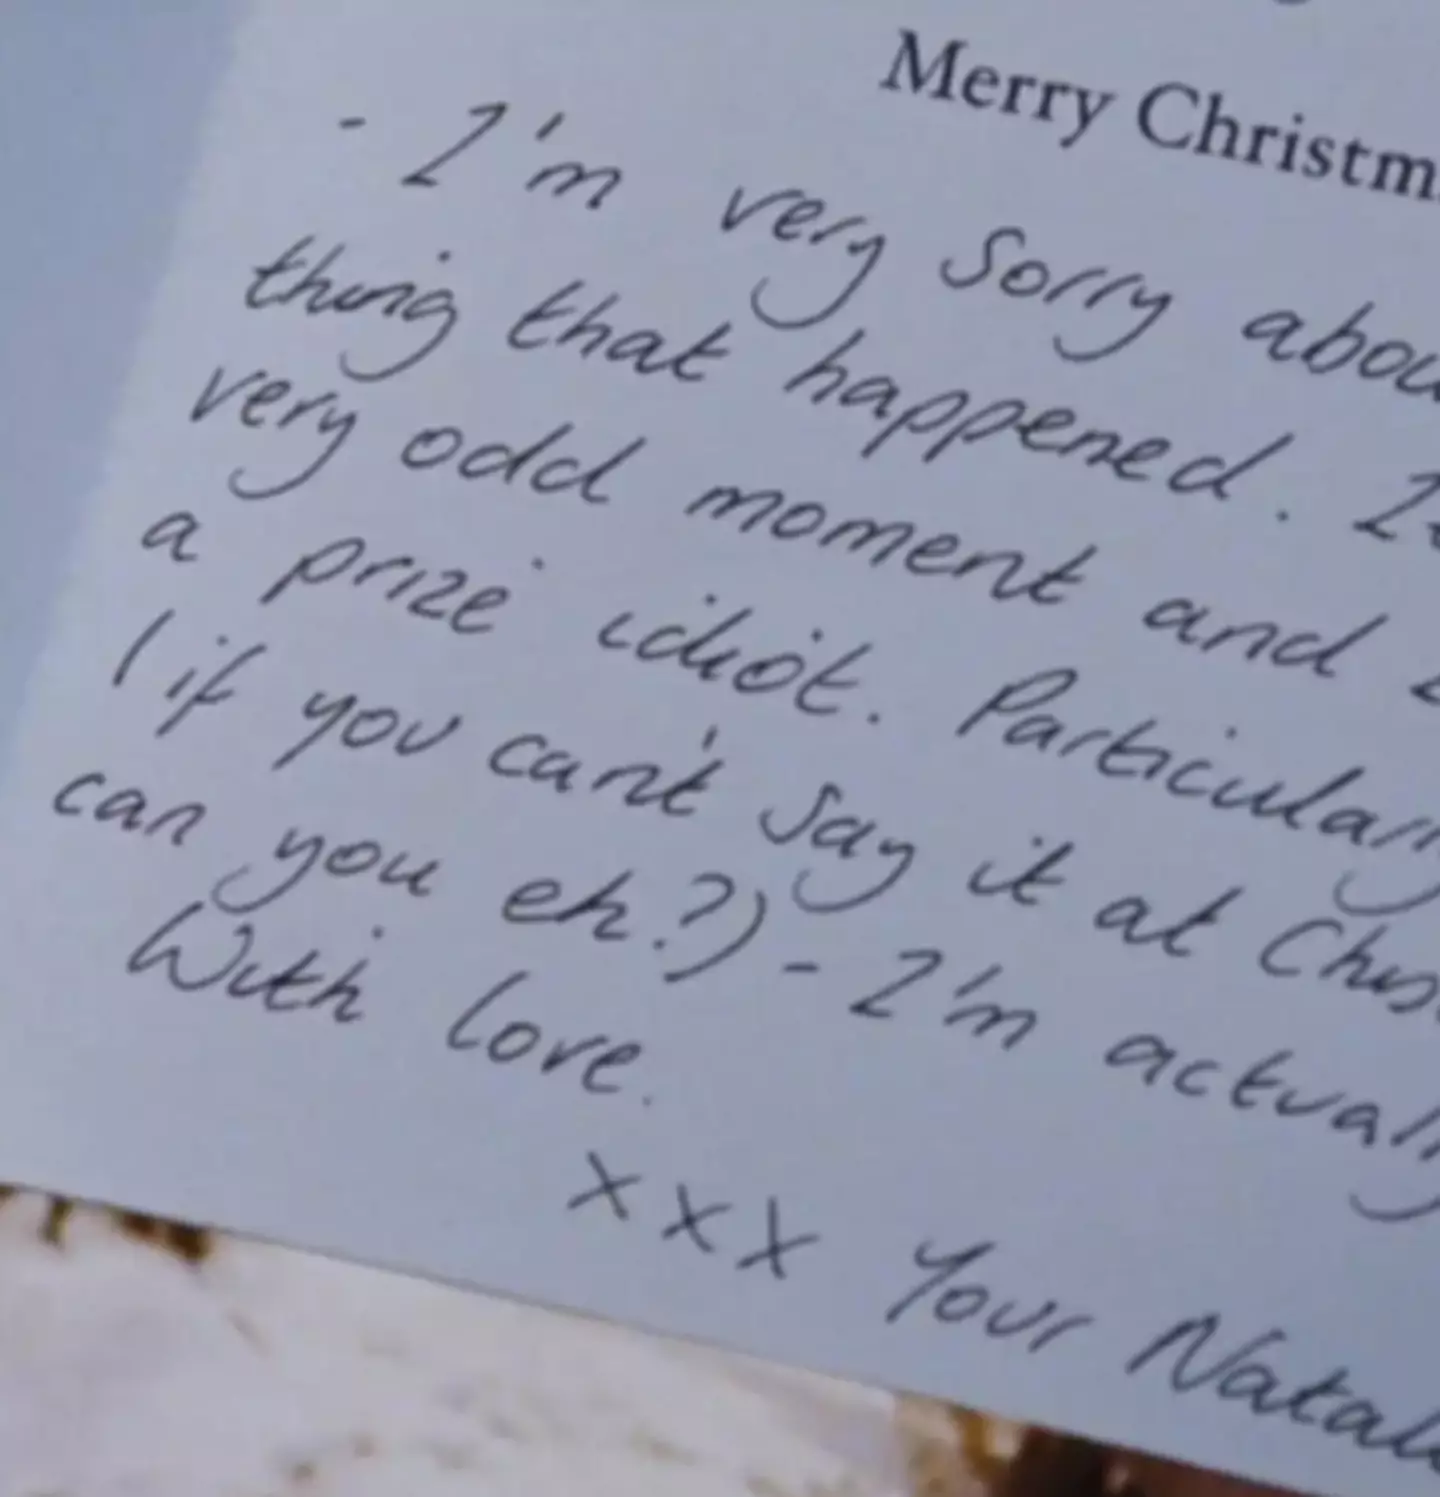 Merry Christm
- I'm very sorry abou
thing that happened. It
very odd moment and I
a prize idiot. Particularly
( if you can't say it at Chris
can you eh?) - I'm actually
With love.
xxx Your Natali